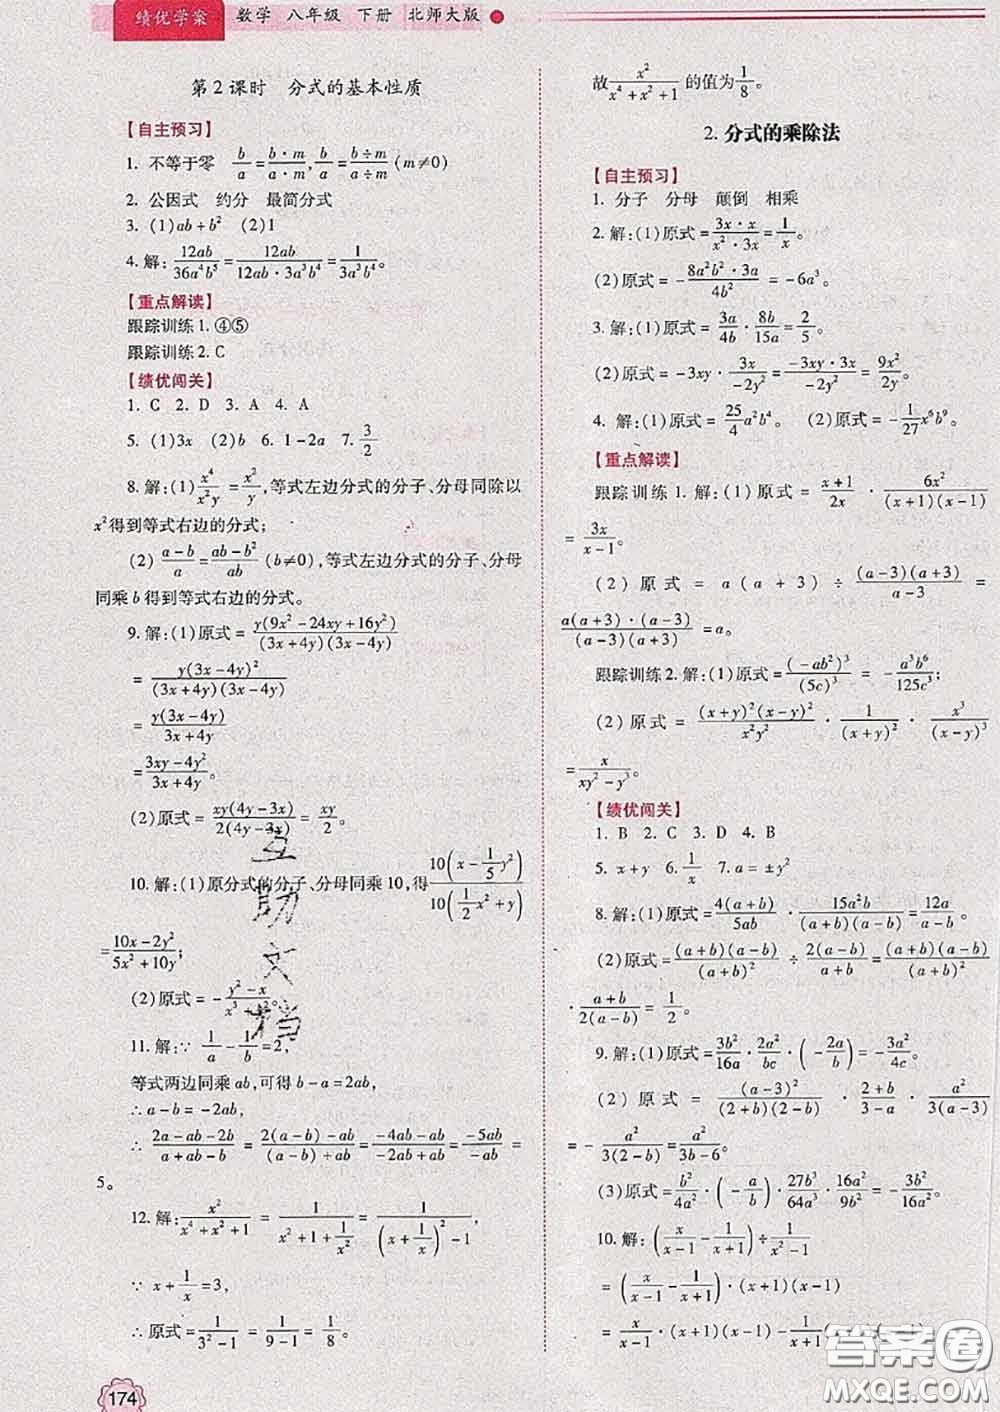 绩优学案 数学 八年级 下册 北师大版
第2课时 分式的基本性质
【自主预习】
1. 不等于零 b/a = (b·m)/(a·m), b/a = (b÷m)/(a÷m) (m≠0)
2. 公因式 约分 最简分式
3. (1)ab+b² (2)1
4. 解: 12ab/(36a⁴b⁵) = 12ab/(12ab·3a³b⁴) = 1/(3a³b⁴)。
【重点解读】
跟踪训练1. ④⑤
跟踪训练2. C
【绩优闯关】
1. C 2. D 3. A 4. A
5. (1)3x (2)b 6. 1-2a 7. 3/2
8. 解:(1) x⁴/(x²y) = x²/y,等式左边分式的分子、分母同除以
x²得到等式右边的分式;
(2) (a-b)/a = (ab-b²)/(ab) (b≠0),等式左边分式的分子、分母
同乘b得到等式右边的分式。
9. 解:(1)原式 = y(9x²-24xy+16y²)/((3x+4y)(3x-4y))
= y(3x-4y)²/((3x+4y)(3x-4y))
= y(3x-4y)/(3x+4y)
= (3xy-4y²)/(3x+4y)。
(2)原式 = xy(4y-3x)/(2(4y-3x)) = xy/2。
10. 解:(1)原分式的分子、分母同乘10,得 10(x-1/5 y²)/(10(1/2 x²+y))
= (10x-2y²)/(5x²+10y);
(2)原式 = -(y²-x)/(x³-x²)。
11. 解:∵ 1/a - 1/b = 2,
等式两边同乘ab,可得b-a=2ab,
∴a-b=-2ab,
∴ (2a-ab-2b)/(a+ab-b) = (2(a-b)-ab)/((a-b)+ab) = (-4ab-ab)/(-2ab+ab) = (-5ab)/(-ab) =
5。
12. 解: x²/(x⁴+x²+1) = 1/(x²+1+1/x²) = 1/((x+1/x)²-1),
∵ x+1/x=3,
∴原式 = 1/(3²-1) = 1/(9-1) = 1/8。
174
故 x²/(x⁴+x²+1) 的值为 1/8。
2. 分式的乘除法
【自主预习】
1. 分子 分母 颠倒 相乘
2. 解:(1)原式 = (3x·x)/(x²·3x) = 1/x。
(2)原式 = -(8a²b²·3a)/(4b²) = -6a³。
3. 解:(1)原式 = 3a/4b · 8b/15a = 2/5。
(2)原式 = -3xy · 3x/(-2y²) = (-3xy·3x)/(-2y²) = 9x²/2y。
4. 解:(1)原式 = 25/4 a²b⁴。 (2)原式 = -1/27 x⁶b⁹。
【重点解读】
跟踪训练1. 解:(1)原式 = (x+1)/2x · 6x²/((x+1)(x-1))
= 3x/(x-1)。
(2)原式 = a(a+3) ÷ (a-3)(a+3)/(a-3) =
a(a+3)·(a-3)/((a-3)(a+3)) = a。
跟踪训练2. 解:(1)原式 = (-ab²)³/(5c)³ = -a³b⁶/125c³;
(2)原式 = (x+y)²(x-y)²/(x²y²) · 1/(x+y)² · x³/(x-y)³
= x/(xy²-y³)。
【绩优闯关】
1. B 2. C 3. D 4. B
5. x+y 6. 1/x 7. a=±y²
8. 解:(1)原式 = 4(a+b)/5ab · 15a²b/((a+b)(a-b)) = 12a/(a-b)。
(2)原式 = (a+b)(a-b)/(a+b)² ÷ 2(a-b)/(a+b) = (a+b)(a-b)/(a+b)²
· (a+b)/(2(a-b)) = 1/2。
9. 解:(1)原式 = 3b²/16a · 2a²/bc · (-2a/b) = -3a²/4c。
(2)原式 = (a-3)²/((2+b)(2-b)) · (2+b)/(3-a) · a²/(3(a-3))
= -a²/(3(2-b)) = a²/(3b-6)。
(3)原式 = b²/4a² · (-a/b) · 27b³/64a³ · 16a²/9b² = -3b²/16a²。
10. 解:(x/(x-1) - 1/(x+1)) ÷ 1/(x²-1)
= (x/(x-1) - 1/(x+1)) · (x+1)(x-1)
= x/(x-1) · (x+1)(x-1) - 1/(x+1)
互助文档
答案圈
MXQE.COM